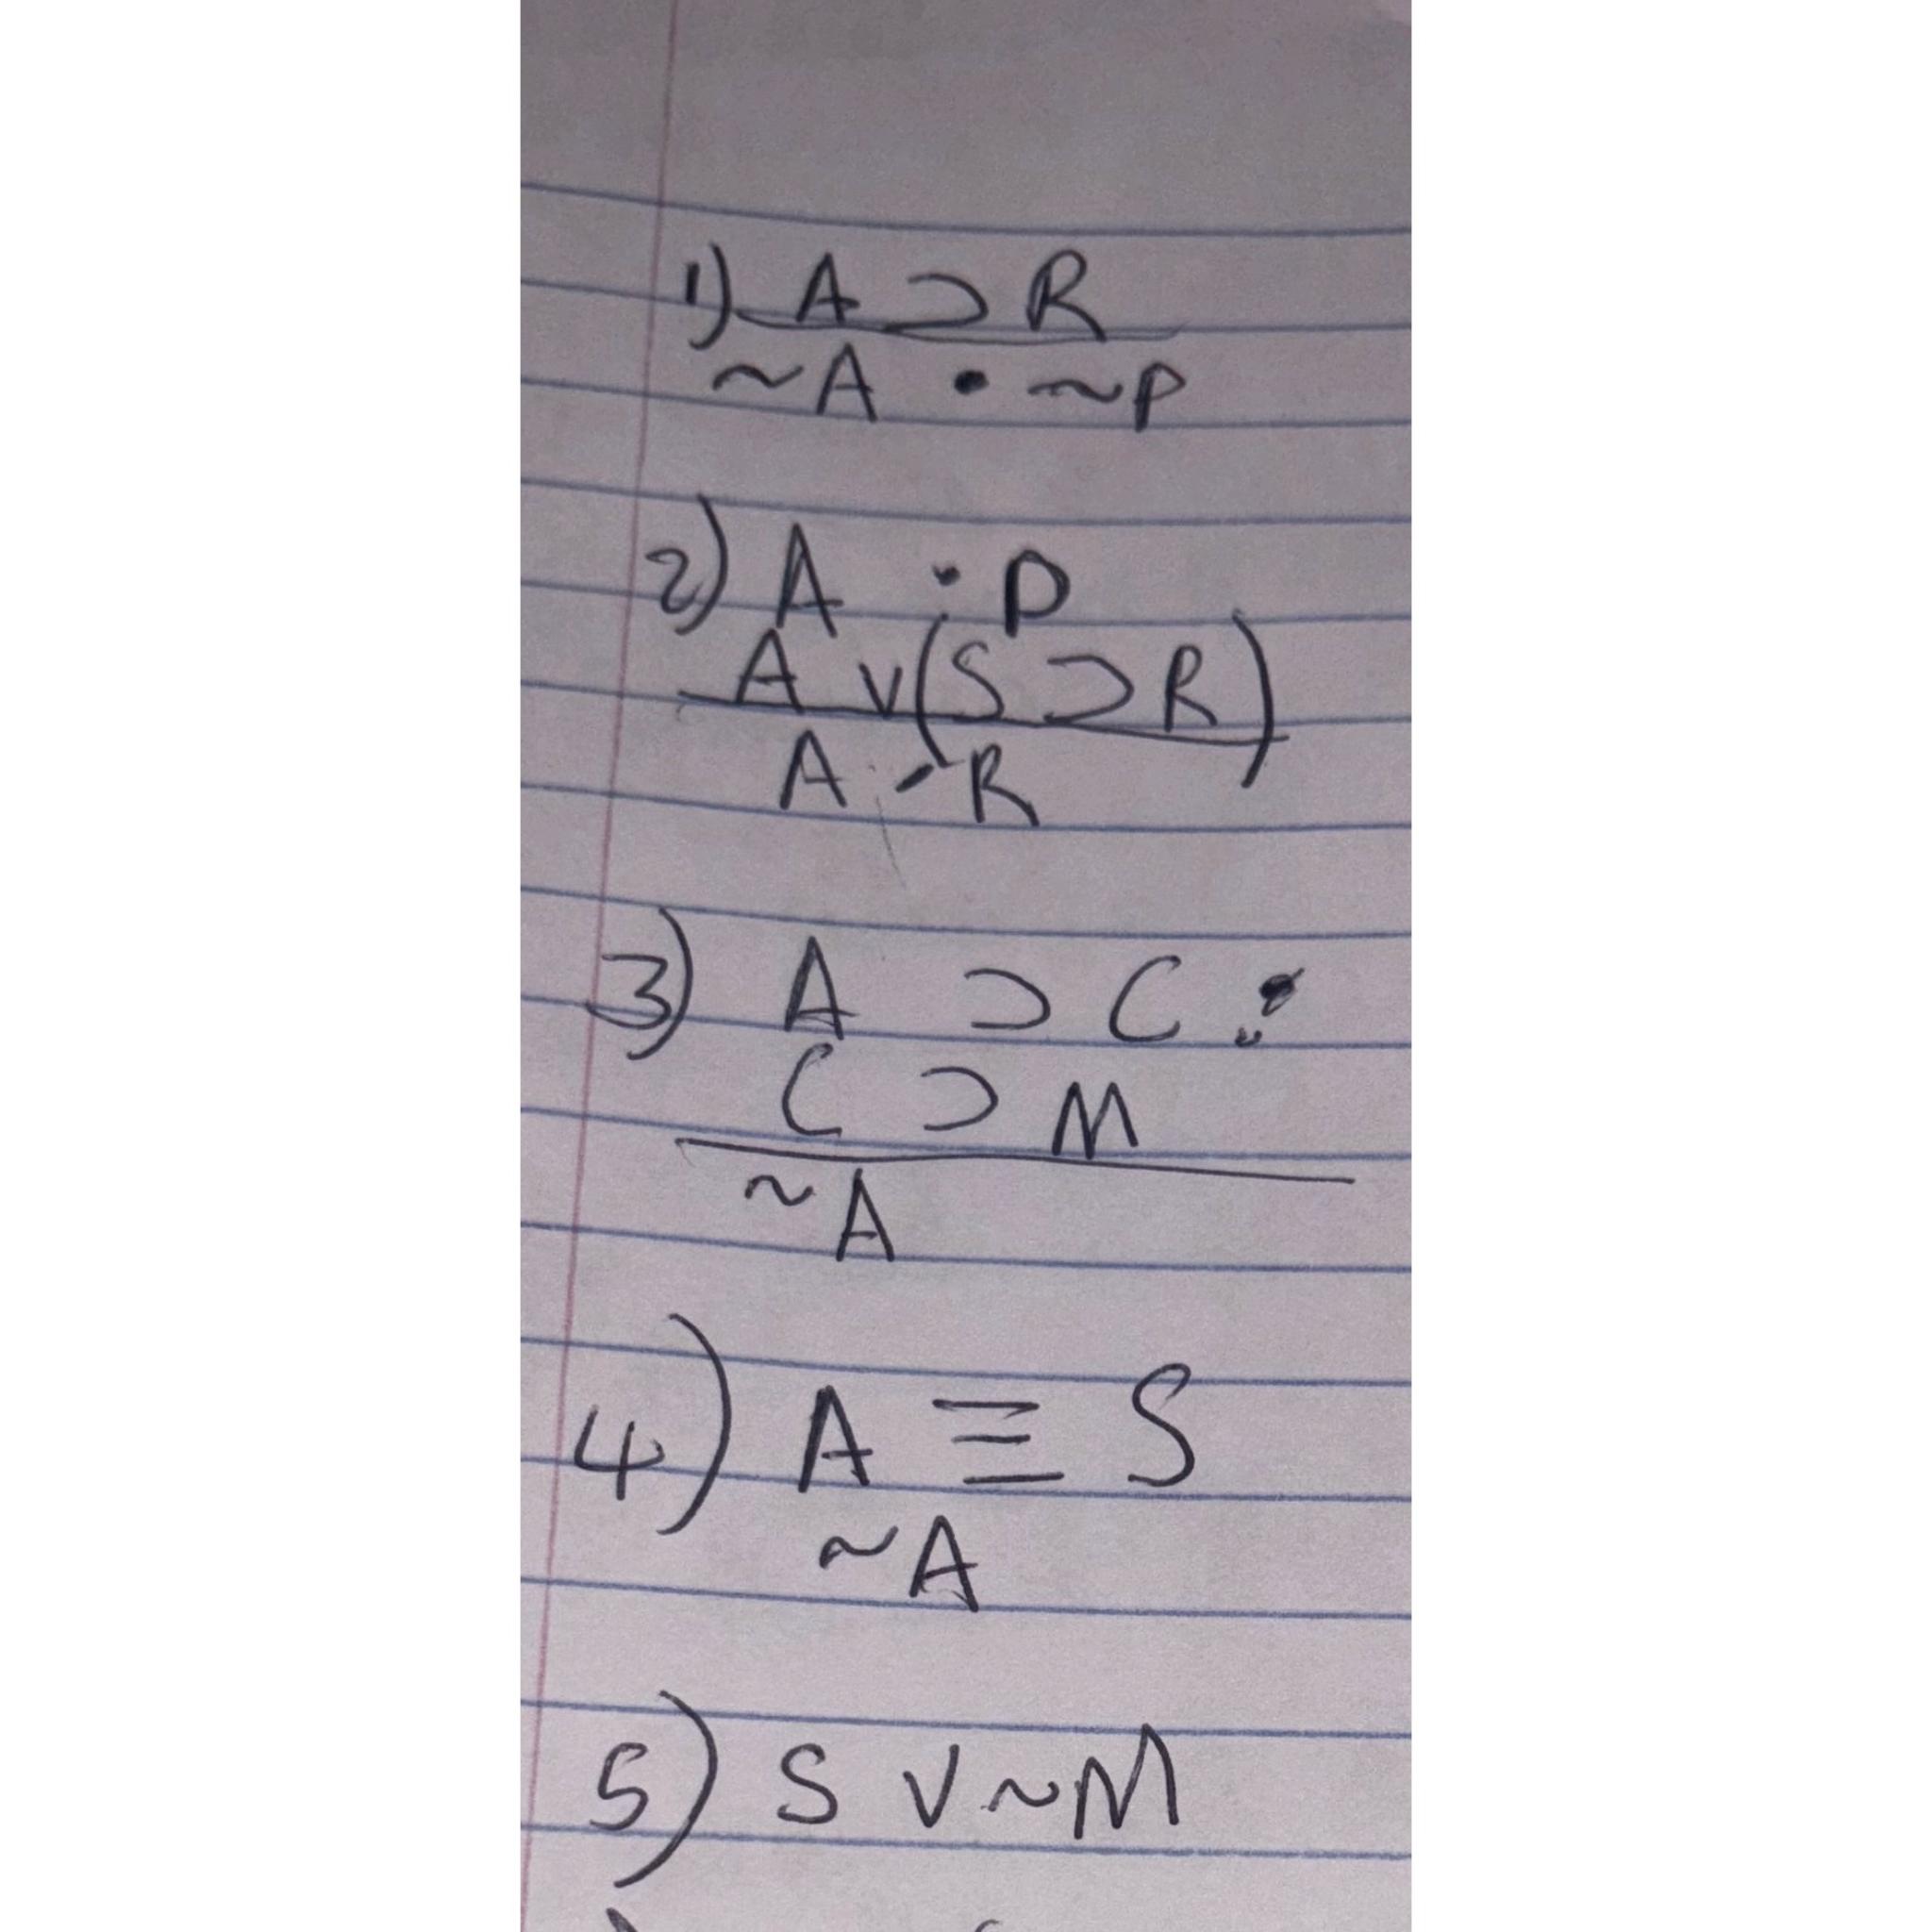 1) A ⊃ R
~A • ~P
2) A · P
A v (S ⊃ R)
A · R
3) A ⊃ C
C ⊃ M
~A
4) A ≡ S
~A
5) S v ~M